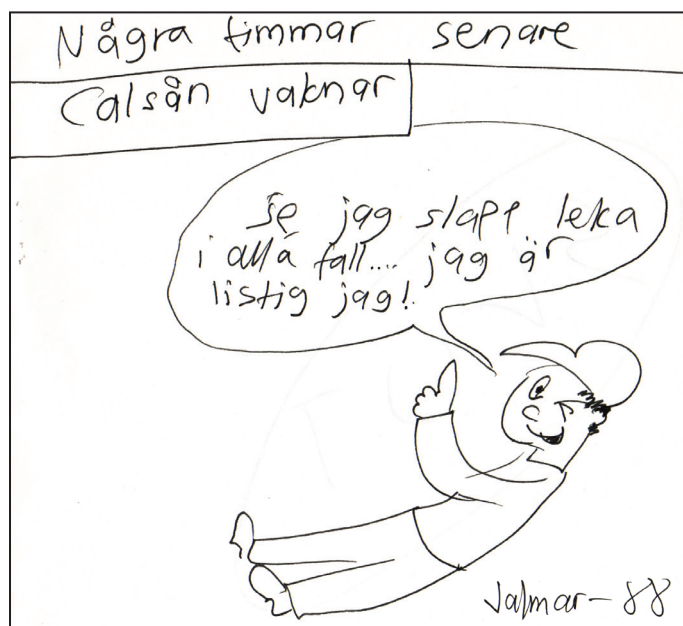 Några timmar senare
Calsån vaknar
Se jag slapp leka
i alla fall.... jag är
listig jag!
Jalmar - 88